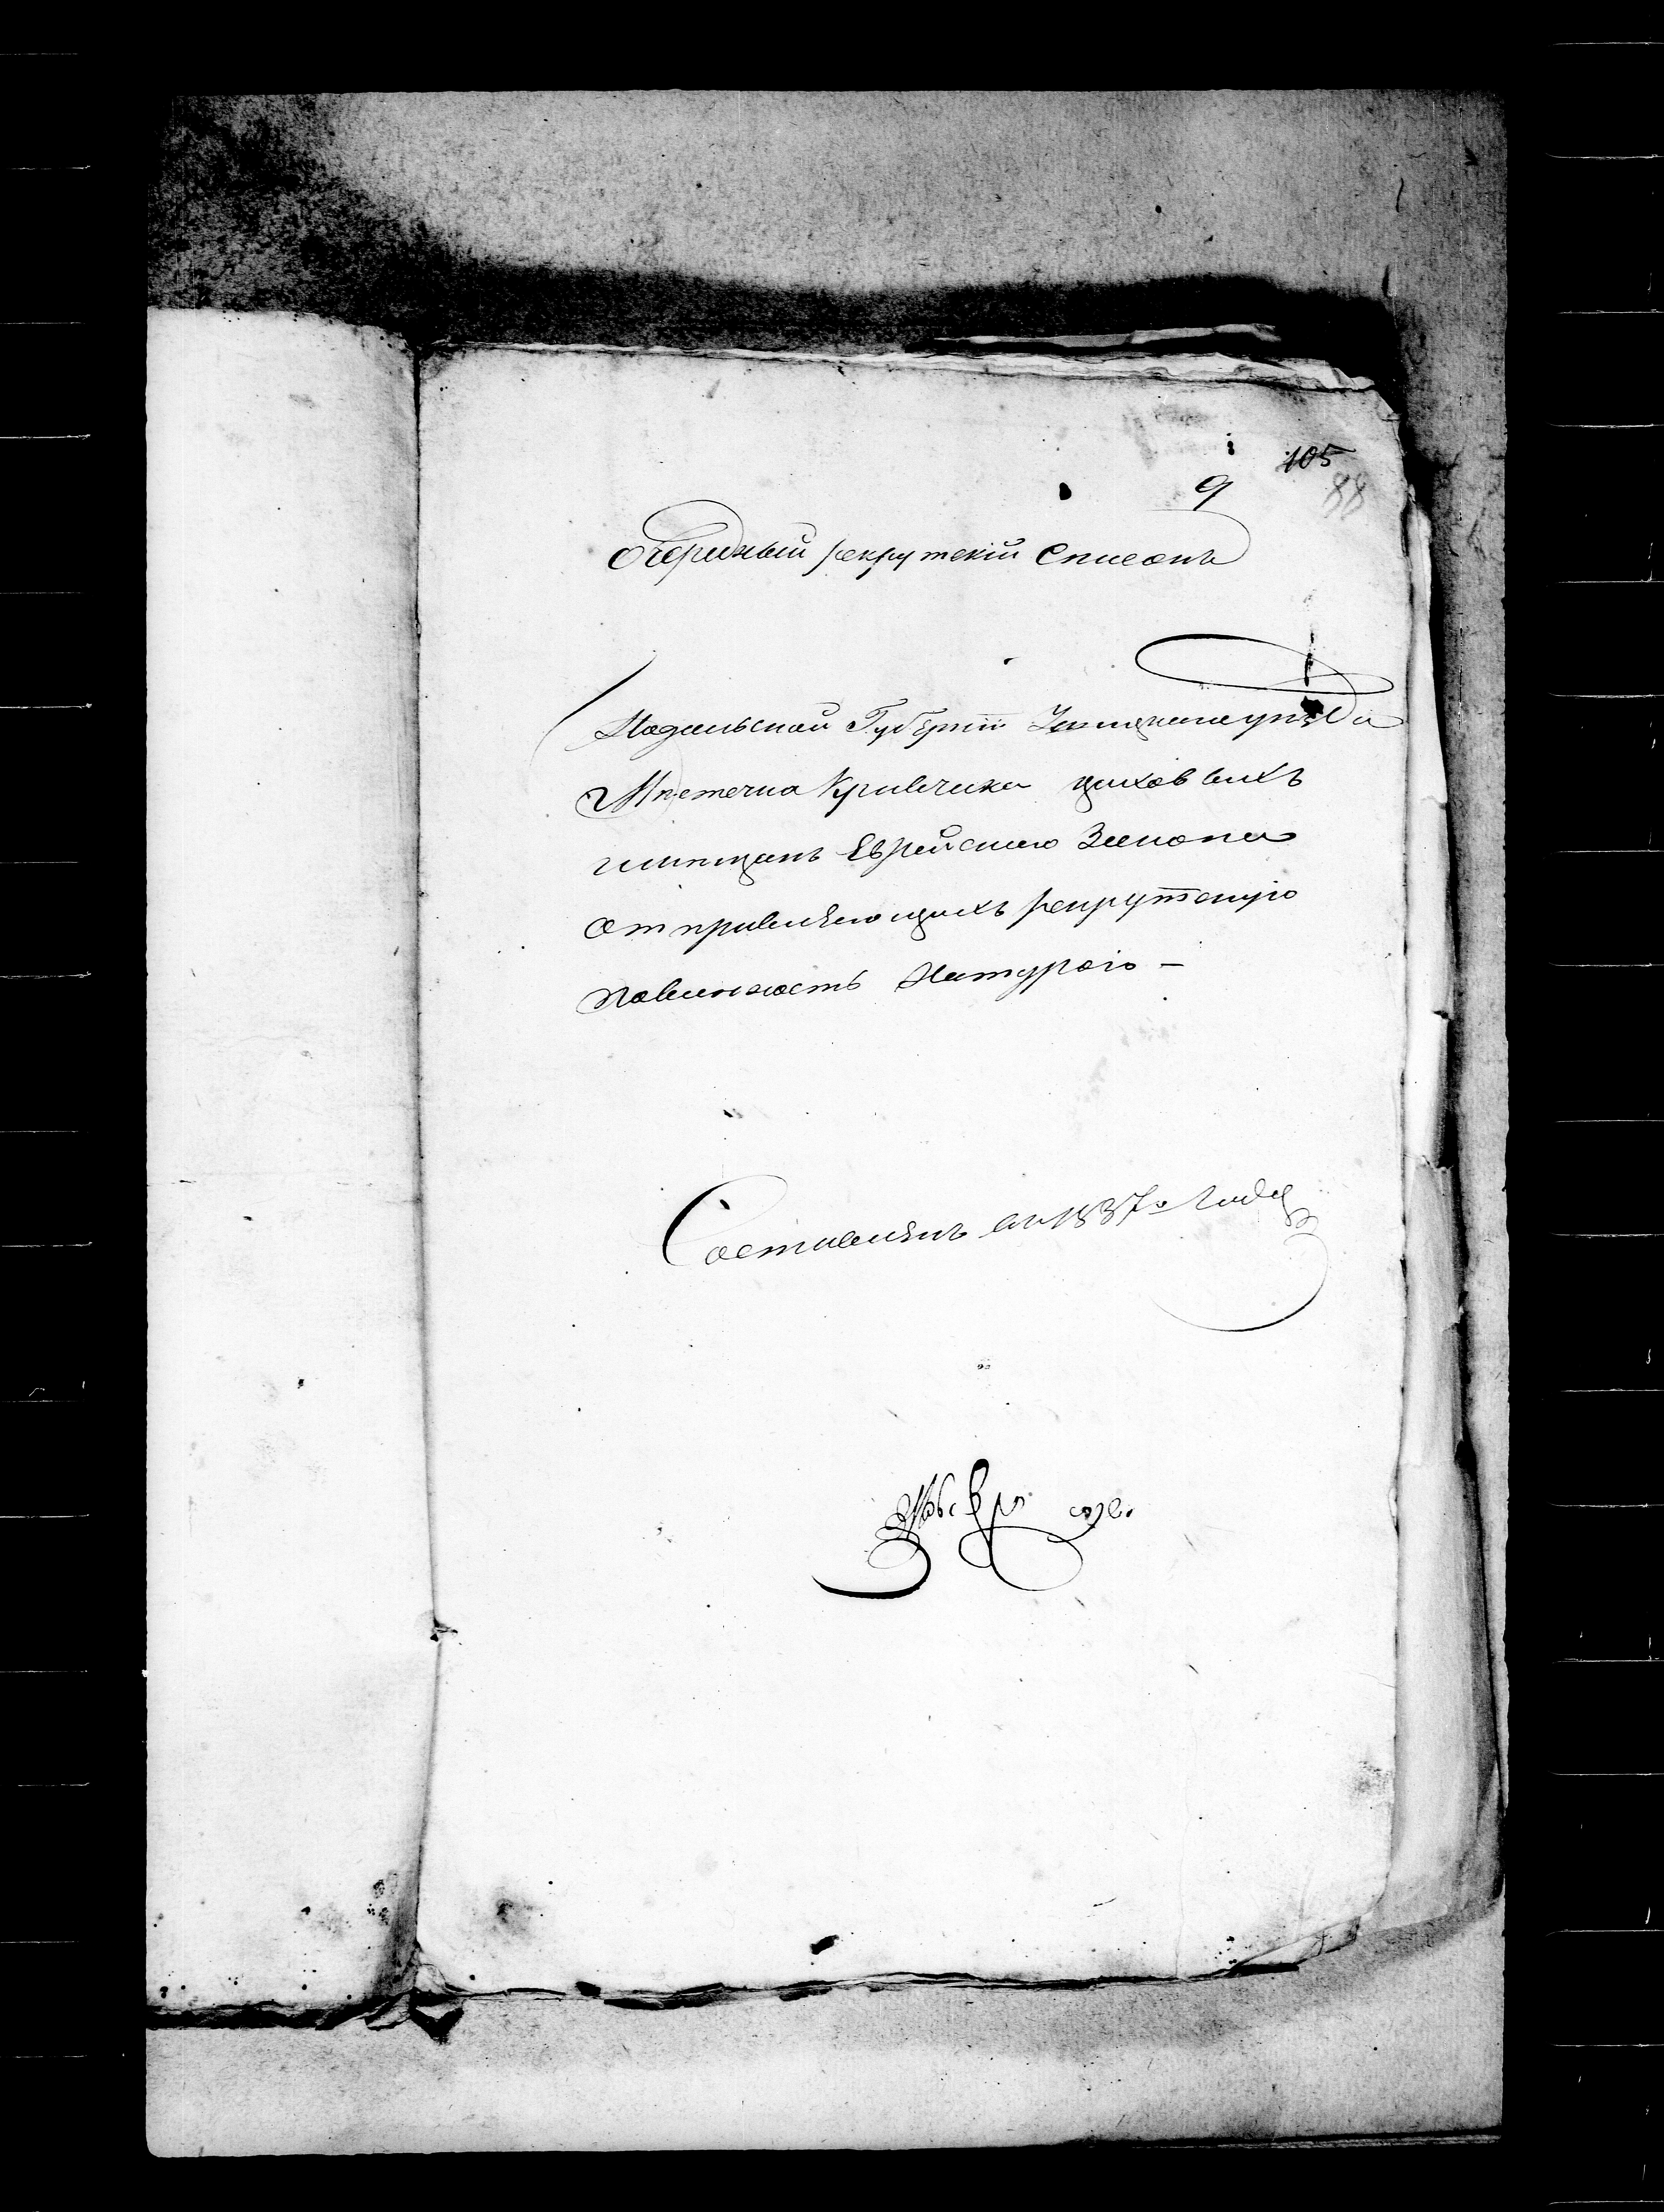 105
9
88
Очередный рекрутский Списокъ
Подольской Губернии Ушицкаго уезда
Местечка Кривчика циховыхъ
мещанъ Еврейскаго Закона
отправляющихъ рекрутскую
повинность Натурою —
Составленъ 1837го Года